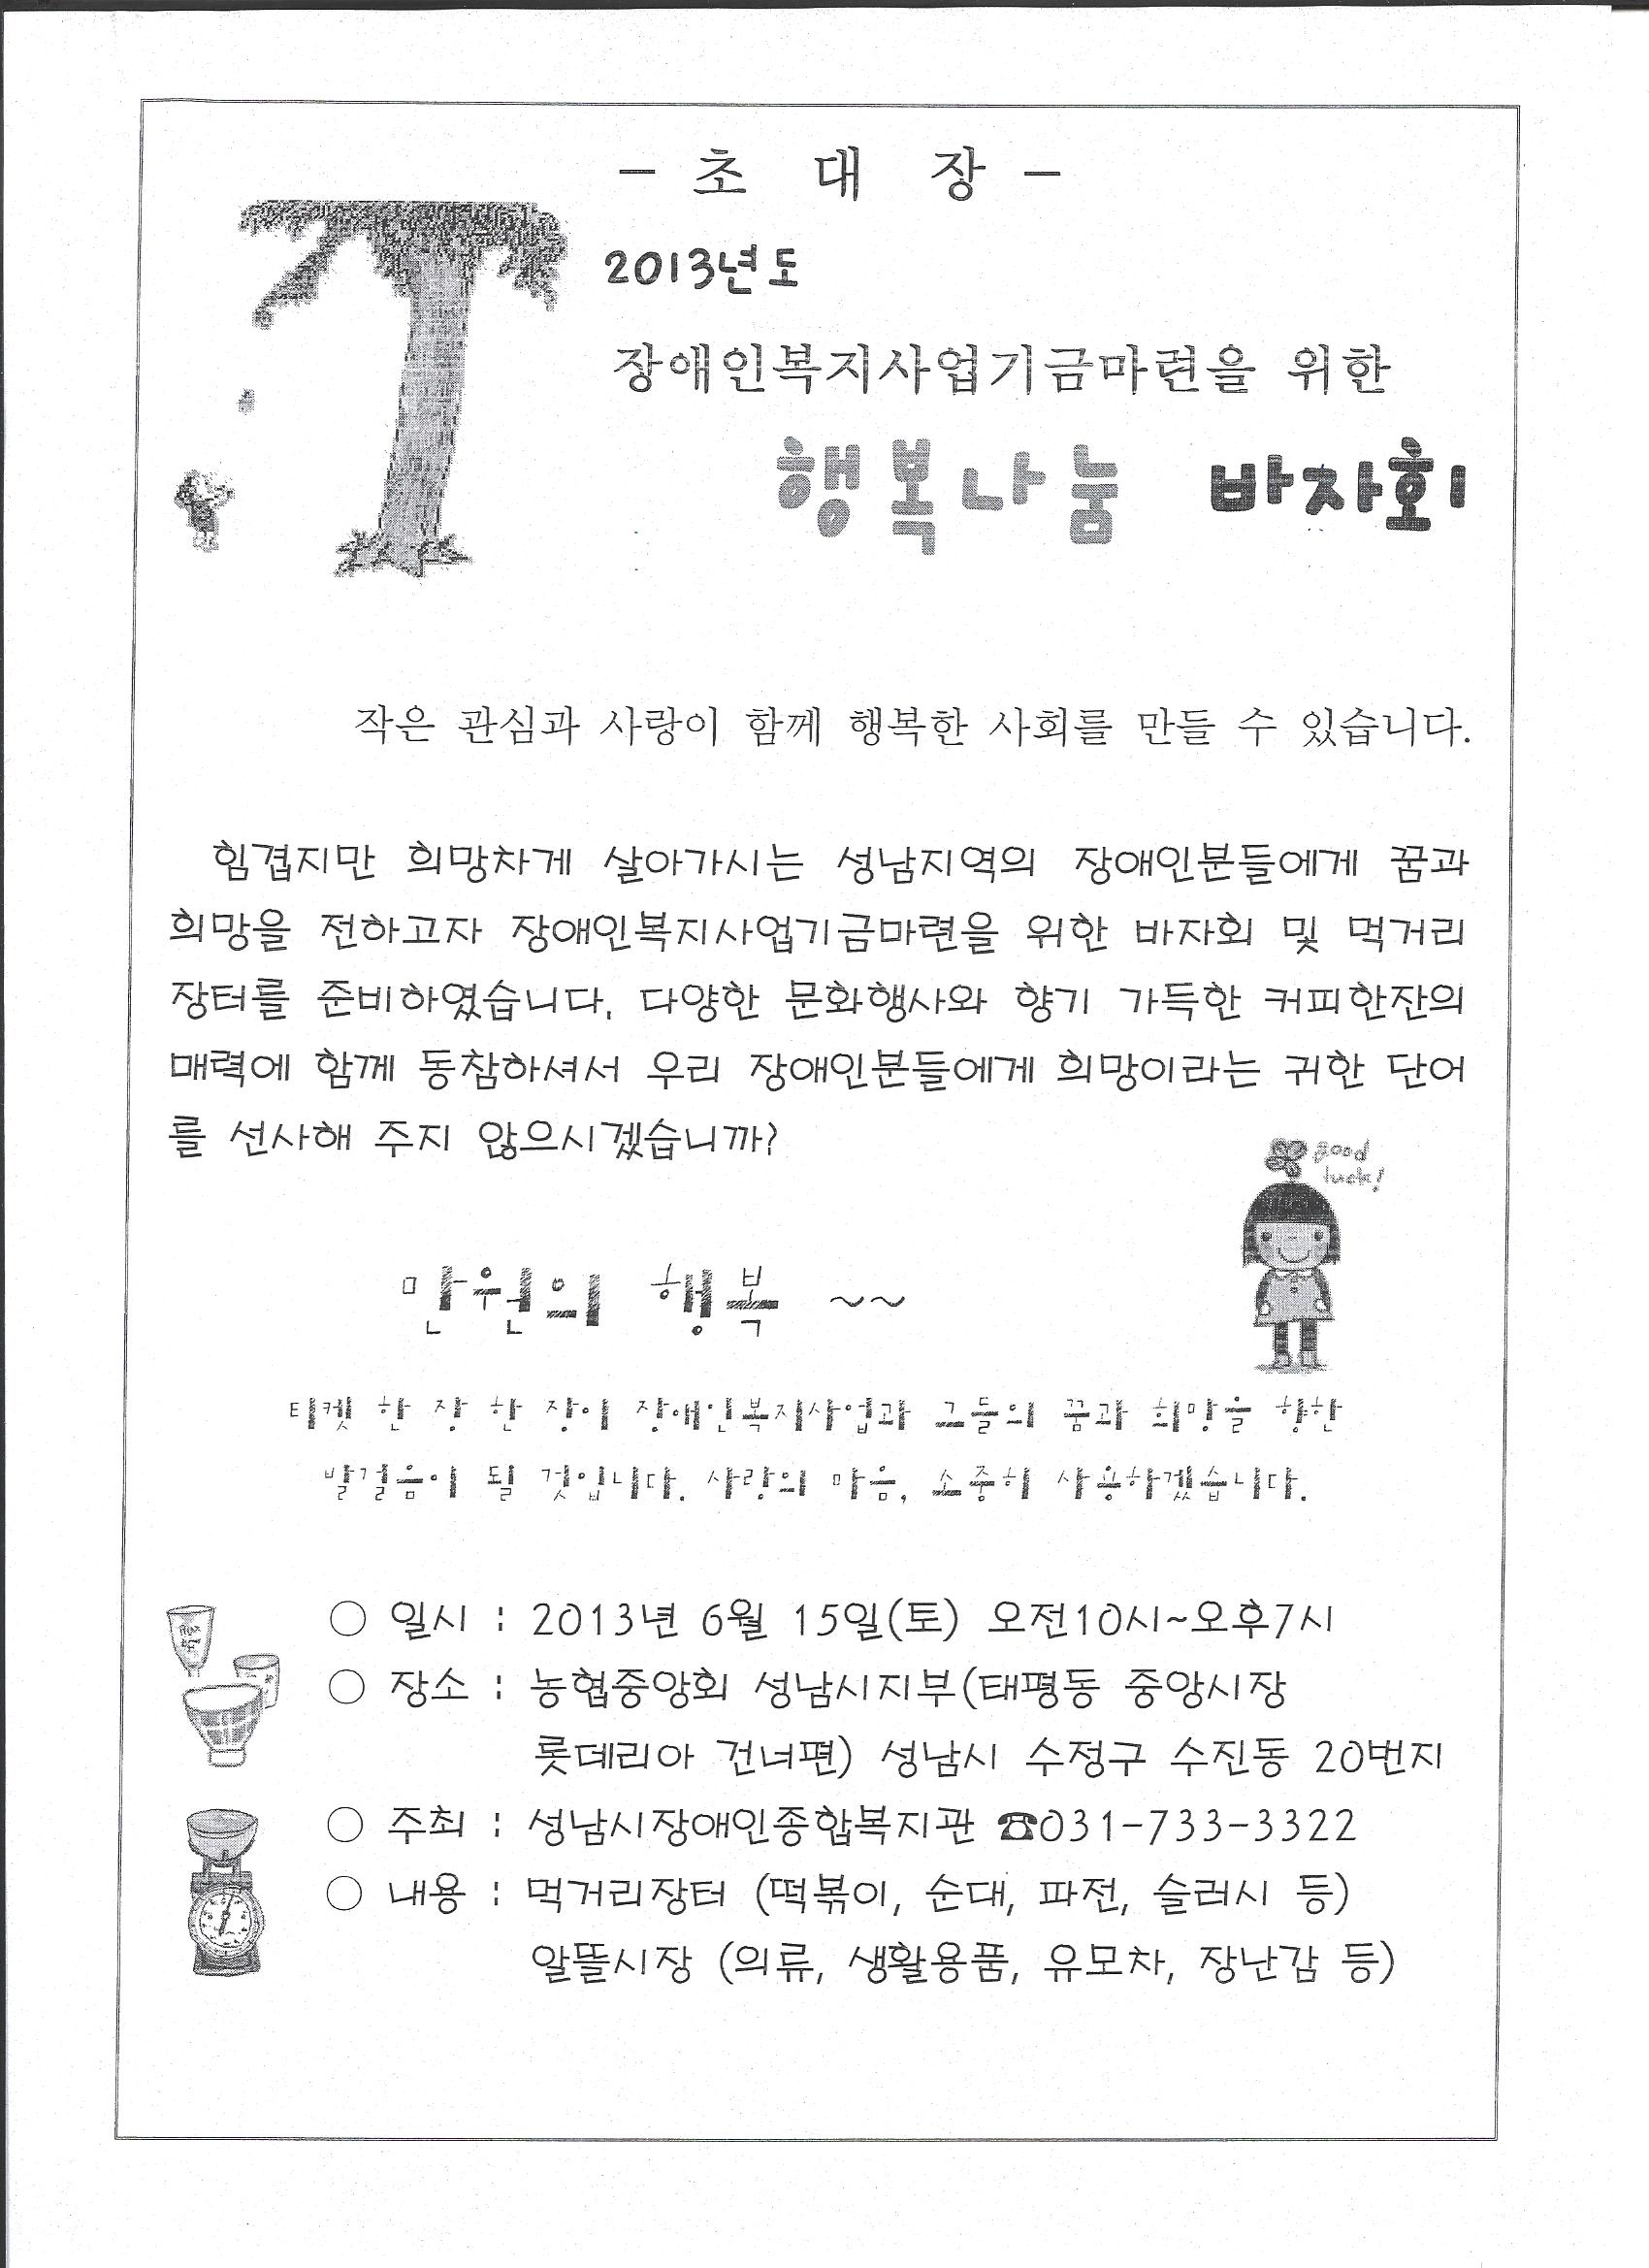 - 초 대 장 -
2013년도
장애인복지사업기금마련을 위한
행복나눔 바자회
작은 관심과 사랑이 함께 행복한 사회를 만들 수 있습니다.
힘겹지만 희망차게 살아가시는 성남지역의 장애인분들에게 꿈과
희망을 전하고자 장애인복지사업기금마련을 위한 바자회 및 먹거리
장터를 준비하였습니다. 다양한 문화행사와 향기 가득한 커피한잔의
매력에 함께 동참하셔서 우리 장애인분들에게 희망이라는 귀한 단어
를 선사해 주지 않으시겠습니까?
good
luck!
만원의 행복 ~~
티켓 한 장 한 장이 장애인복지사업과 그들의 꿈과 희망을 향한
발걸음이 될 것입니다. 사랑의 마음, 소중히 사용하겠습니다.
○ 일시 : 2013년 6월 15일(토) 오전10시~오후7시
○ 장소 : 농협중앙회 성남시지부(태평동 중앙시장
롯데리아 건너편) 성남시 수정구 수진동 20번지
○ 주최 : 성남시장애인종합복지관 ☎031-733-3322
○ 내용 : 먹거리장터 (떡볶이, 순대, 파전, 슬러시 등)
알뜰시장 (의류, 생활용품, 유모차, 장난감 등)